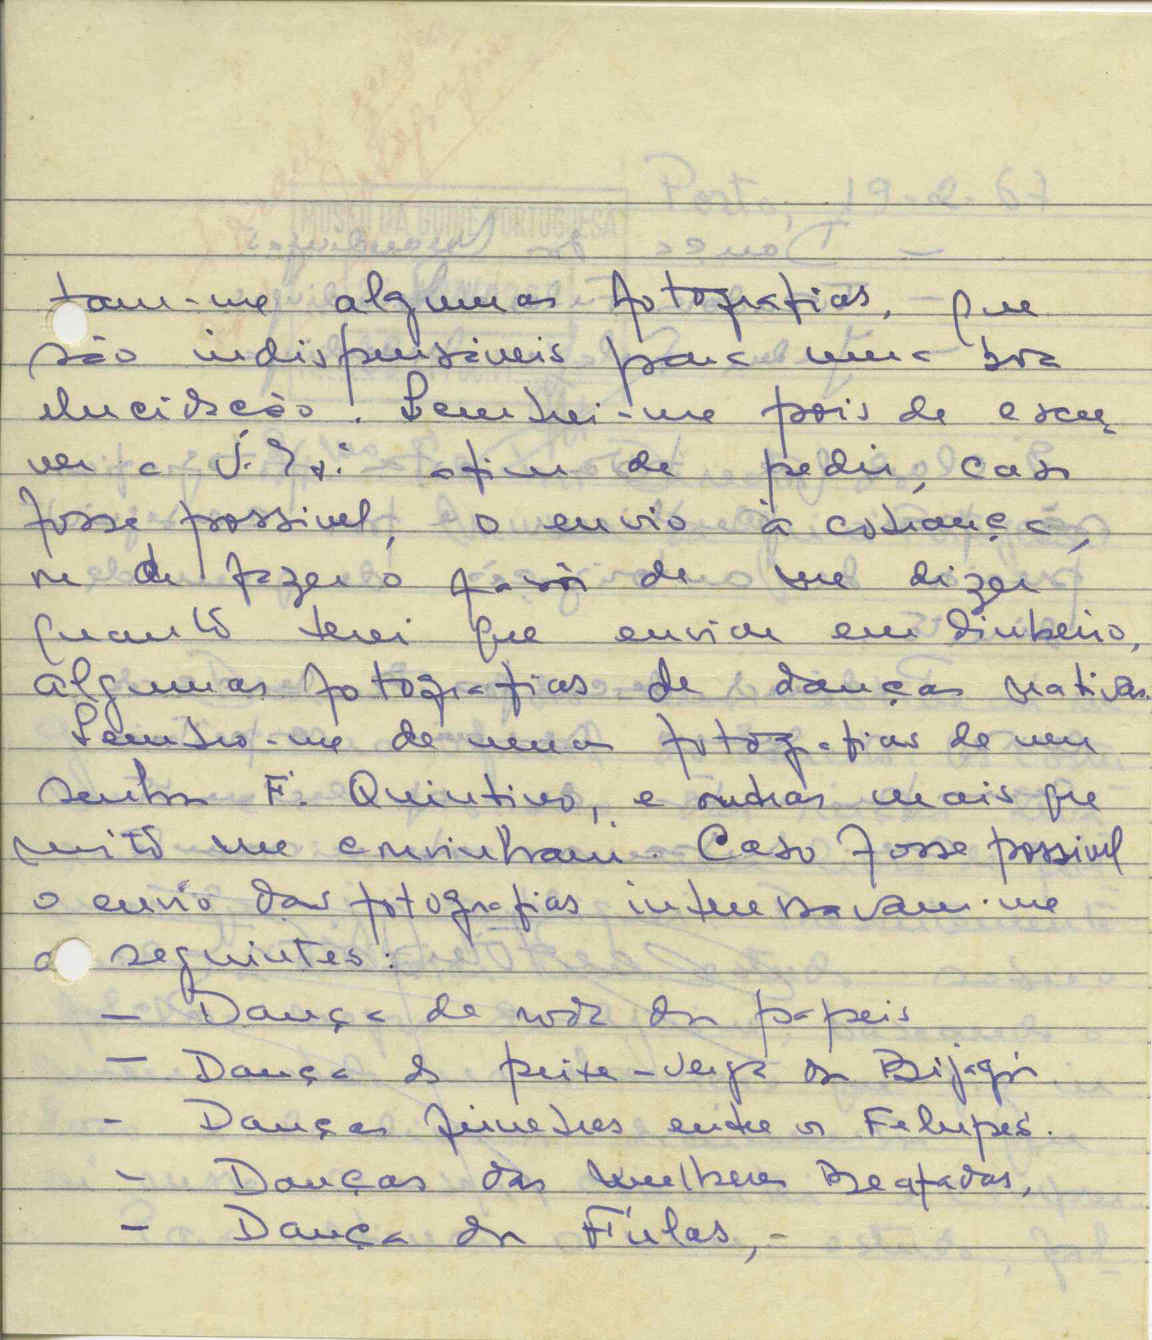 tam-me algumas fotografias, que
são indispensáveis para uma boa
elucidação. Lembrei-me pois de escre
ver a V. Exª. afim de pedir, caso
fosse possivel, o envio à cobrança,
ou de fazer o favor de me dizer
quanto terei que enviar em dinheiro,
algumas fotografias de danças nativas.
Lembro-me de umas fotografias de um
senhor F. Quintino, e outras mais que
muito me convinham. Caso fosse possivel
o envio das fotografias interessavam-me
as seguintes:
— Dança de roda dos papeis
— Dança do peixe-verga dos Bijagós
- Danças funebres entre os Felupes.
- Danças das mulheres Beafadas,
- Dança dos Fulas,-
MUSEU DA GUINÉ PORTUGUESA